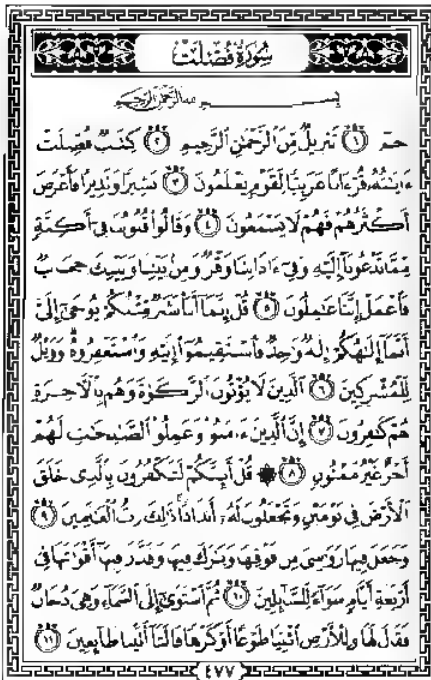 سُورَةُ فُصِّلَتْ
بِسْمِ اللَّهِ الرَّحْمَٰنِ الرَّحِيمِ
حمٓ ١ تَنزِيلٌ مِّنَ ٱلرَّحْمَٰنِ ٱلرَّحِيمِ ٢ كِتَٰبٌ فُصِّلَتْ
ءَايَٰتُهُۥ قُرْءَانًا عَرَبِيًّا لِّقَوْمٍ يَعْلَمُونَ ٣ بَشِيرًا وَنَذِيرًا فَأَعْرَضَ
أَكْثَرُهُمْ فَهُمْ لَا يَسْمَعُونَ ٤ وَقَالُوا۟ قُلُوبُنَا فِىٓ أَكِنَّةٍ
مِّمَّا تَدْعُونَآ إِلَيْهِ وَفِىٓ ءَاذَانِنَا وَقْرٌ وَمِنۢ بَيْنِنَا وَبَيْنِكَ حِجَابٌ
فَٱعْمَلْ إِنَّنَا عَٰمِلُونَ ٥ قُلْ إِنَّمَآ أَنَا۠ بَشَرٌ مِّثْلُكُمْ يُوحَىٰٓ إِلَىَّ
أَنَّمَآ إِلَٰهُكُمْ إِلَٰهٌ وَٰحِدٌ فَٱسْتَقِيمُوٓا۟ إِلَيْهِ وَٱسْتَغْفِرُوهُ وَوَيْلٌ
لِّلْمُشْرِكِينَ ٦ ٱلَّذِينَ لَا يُؤْتُونَ ٱلزَّكَوٰةَ وَهُم بِٱلْءَاخِرَةِ
هُمْ كَٰفِرُونَ ٧ إِنَّ ٱلَّذِينَ ءَامَنُوا۟ وَعَمِلُوا۟ ٱلصَّٰلِحَٰتِ لَهُمْ
أَجْرٌ غَيْرُ مَمْنُونٍ ٨ ۞ قُلْ أَئِنَّكُمْ لَتَكْفُرُونَ بِٱلَّذِى خَلَقَ
ٱلْأَرْضَ فِى يَوْمَيْنِ وَتَجْعَلُونَ لَهُۥٓ أَندَادًا ذَٰلِكَ رَبُّ ٱلْعَٰلَمِينَ ٩
وَجَعَلَ فِيهَا رَوَٰسِىَ مِن فَوْقِهَا وَبَٰرَكَ فِيهَا وَقَدَّرَ فِيهَآ أَقْوَٰتَهَا فِىٓ
أَرْبَعَةِ أَيَّامٍ سَوَآءً لِّلسَّآئِلِينَ ١٠ ثُمَّ ٱسْتَوَىٰٓ إِلَى ٱلسَّمَآءِ وَهِىَ دُخَانٌ
فَقَالَ لَهَا وَلِلْأَرْضِ ٱئْتِيَا طَوْعًا أَوْ كَرْهًا قَالَتَآ أَتَيْنَا طَآئِعِينَ ١١
٤٧٧